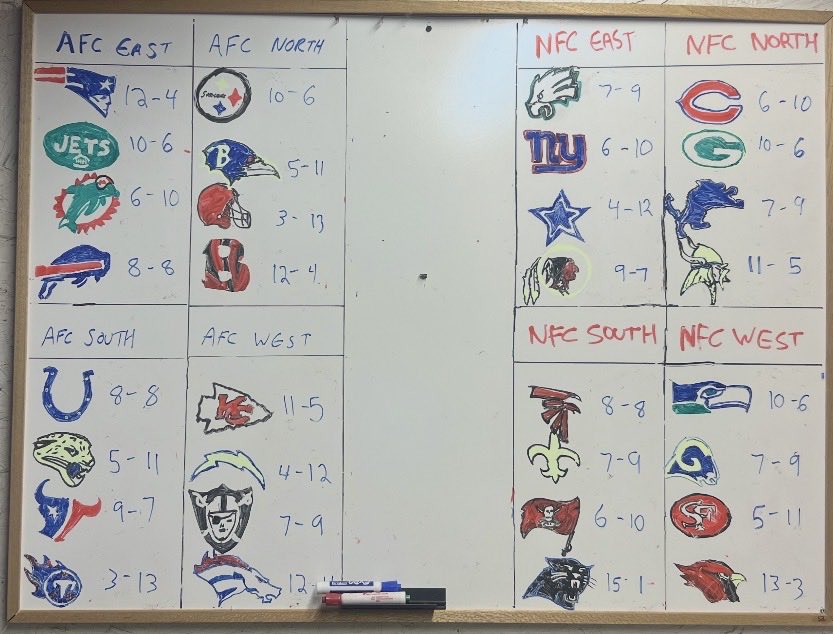 AFC EAST
12-4
JETS 10-6
6-10
8-8
AFC NORTH
Steelers 10-6
B 5-11
3-13
B 12-4
NFC EAST
7-9
ny 6-10
4-12
9-7
NFC NORTH
C 6-10
G 10-6
7-9
11-5
AFC SOUTH
8-8
5-11
9-7
T 3-13
AFC WEST
KC 11-5
4-12
7-9
12
NFC SOUTH
8-8
7-9
6-10
15-1
NFC WEST
10-6
7-9
SF 5-11
13-3